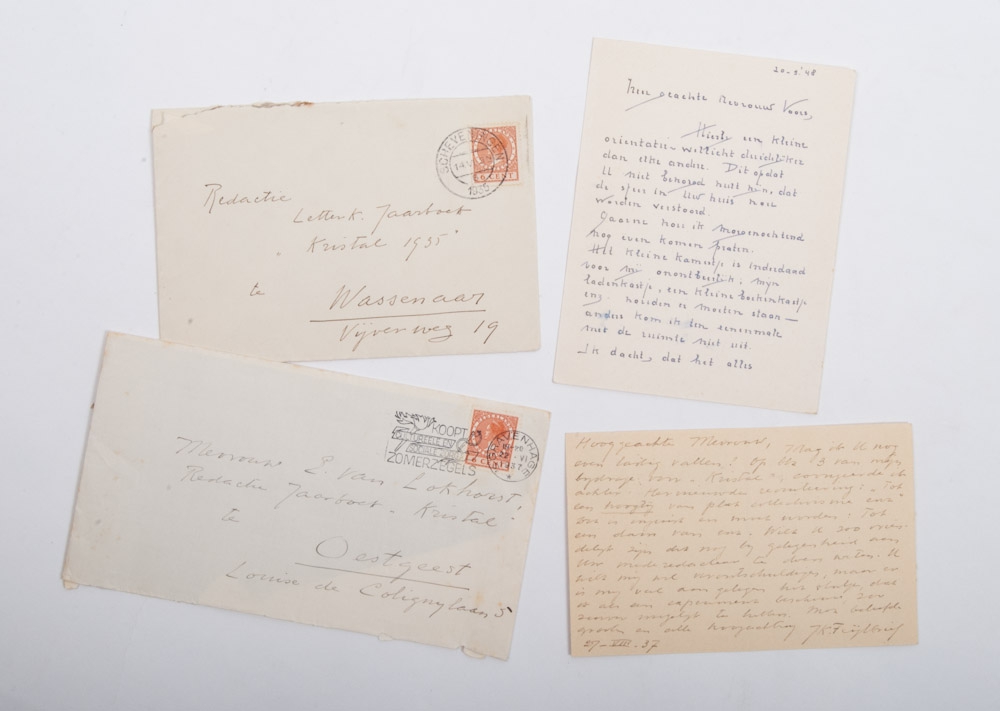 SCHEVENINGEN
1935
Redactie
Letterk. Jaarboek
"Kristal 1935"
te
Wassenaar
Vijverweg 19
KOOPT
ZOMERZEGELS
'S GRAVENHAGE
1937
Mevrouw E. van Lokhorst,
Redactie Jaarboek "Kristal"
te
Oestgeest
Louise de Colignylaan 5
20-2-'48
Zeer geachte Mevrouw Voors,
Hierbij een kleine
orientatie wellicht duidelijker
dan elke andere. Dit opdat
U niet behoeft
de sfeer in Uw huis
worden verstoord.
Gaarne kom ik morgenochtend
nog even komen praten.
Het kleine kamertje is inderdaad
voor mij onontbeerlijk; mijn
ladenkastje, een kleine boekenkastje
enz. zouden er moeten staan —
anders kom ik ten eenenmale
met de ruimte niet uit.
Ik dacht, dat het alles
Hooggeachte Mevrouw,
Mag ik U nog
even lastig vallen? Op blz 13 van mijn
bijdrage voor "Kristal",
een hoogte van plat
is ongeveer
een daam van ons. Wilt U zoo vrien-
delijk zijn dat nog bij gelegenheid aan
Uw mederedacteur te doen weten. U
wilt mij wel verontschuldigen, maar er
is mij veel aan gelegen het stukje, dat
ik als een experiment beschouw, zoo
zuiver mogelijk te hebben. Met beleefde
groeten en alle hoogachting
27-VIII-37